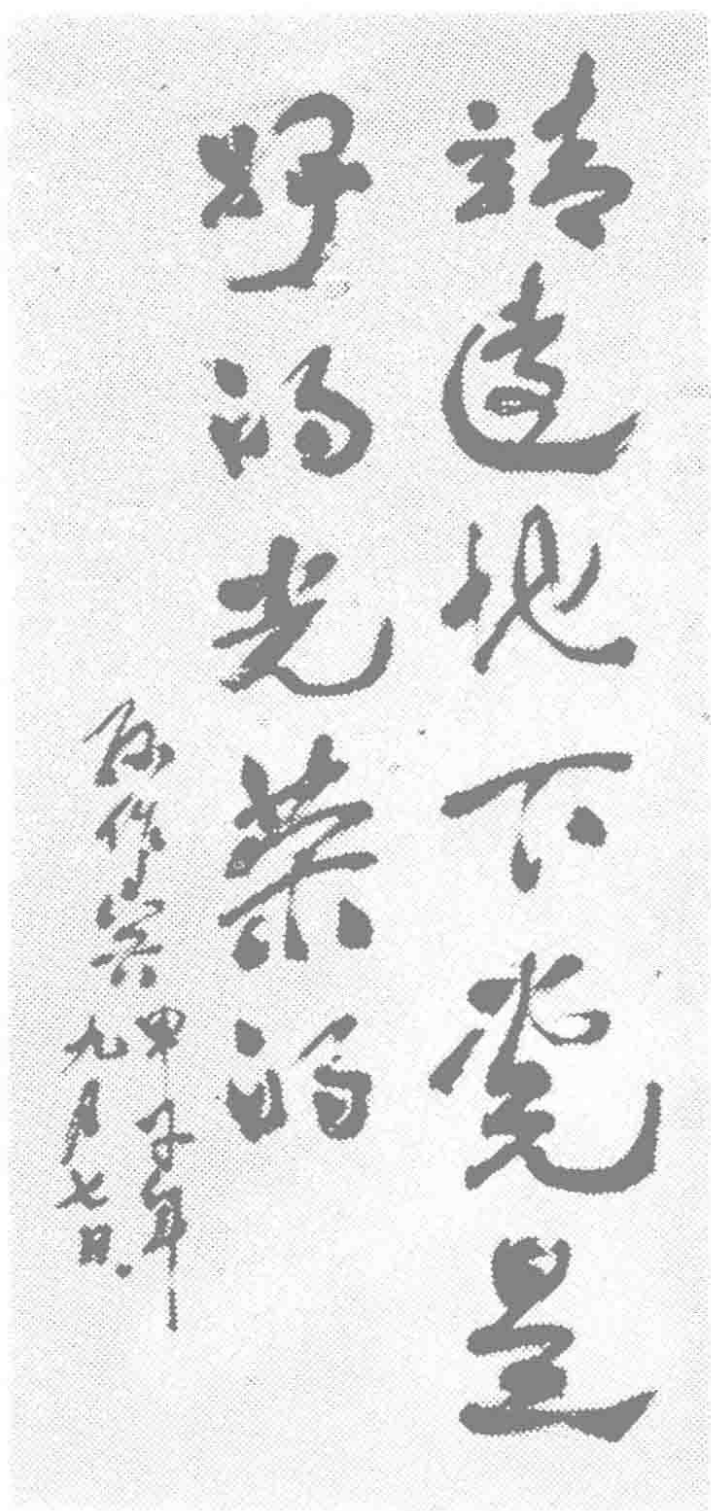 靖遠地下党是
好的光荣的
孙作宾 甲子年
九月七日